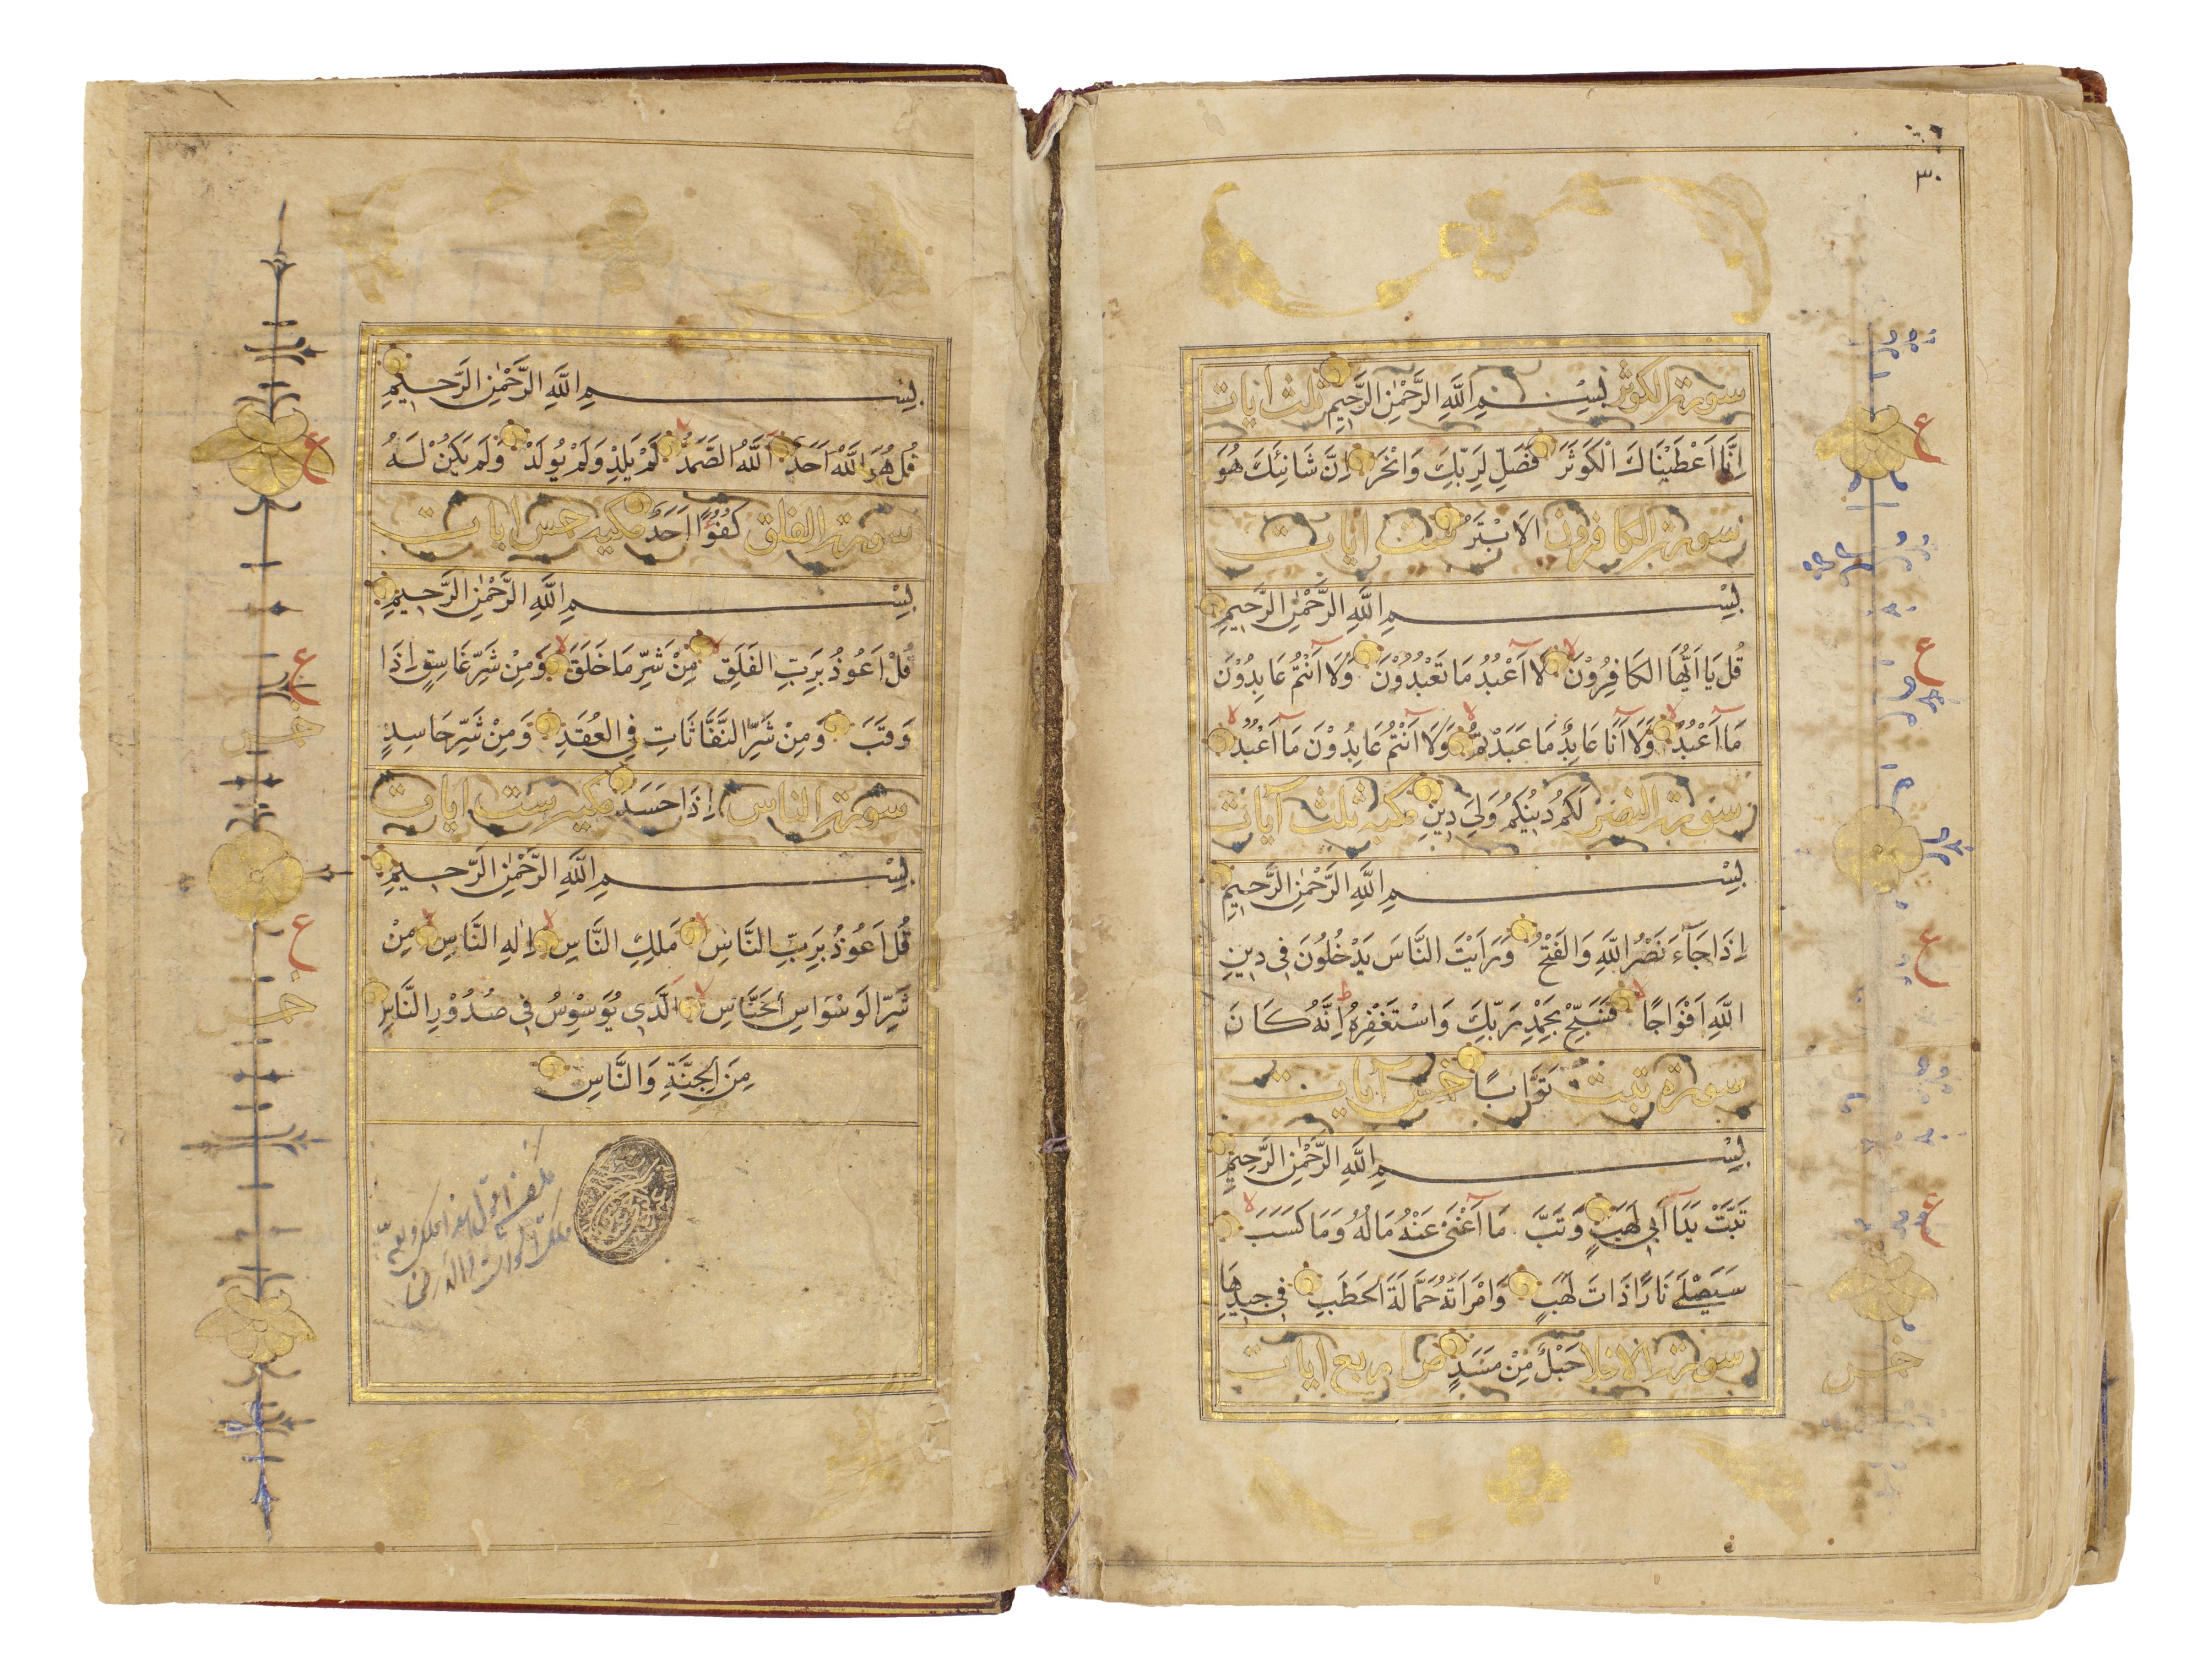 ٣٠
سورة الكوثر بِسْمِ اللَّهِ الرَّحْمٰنِ الرَّحِيمِ ثلث ايات
اِنَّا اَعْطَيْنَاكَ الْكَوْثَرَ فَصَلِّ لِرَبِّكَ وَانْحَرْ اِنَّ شَانِئَكَ هُوَ
سورة الكافرون الْاَبْتَرُ ست ايات
بِسْمِ اللَّهِ الرَّحْمٰنِ الرَّحِيمِ
قُلْ يَا اَيُّهَا الْكَافِرُوْنَ لَا اَعْبُدُ مَا تَعْبُدُوْنَ وَلَا اَنْتُمْ عَابِدُوْنَ
مَا اَعْبُدُ وَلَا اَنَا عَابِدٌ مَا عَبَدْتُمْ وَلَا اَنْتُمْ عَابِدُوْنَ مَا اَعْبُدُ
سورة النصر لَكُمْ دِيْنُكُمْ وَلِيَ دِيْنِ مكية ثلث آيات
بِسْمِ اللَّهِ الرَّحْمٰنِ الرَّحِيمِ
اِذَا جَآءَ نَصْرُ اللَّهِ وَالْفَتْحُ وَرَاَيْتَ النَّاسَ يَدْخُلُوْنَ فِي دِيْنِ
اللَّهِ اَفْوَاجًا فَسَبِّحْ بِحَمْدِ رَبِّكَ وَاسْتَغْفِرْهُ اِنَّهُ كَانَ
سورة تبت تَوَّابًا خمس آيات
بِسْمِ اللَّهِ الرَّحْمٰنِ الرَّحِيمِ
تَبَّتْ يَدَا اَبِي لَهَبٍ وَتَبَّ مَا اَغْنٰى عَنْهُ مَالُهُ وَمَا كَسَبَ
سَيَصْلٰى نَارًا ذَاتَ لَهَبٍ وَامْرَاَتُهُ حَمَّالَةَ الْحَطَبِ فِي جِيْدِهَا
سورة الاخلا حَبْلٌ مِنْ مَسَدٍ ص اربع ايات
ع
ع
ع
ع
بِسْمِ اللَّهِ الرَّحْمٰنِ الرَّحِيمِ
قُلْ هُوَ اللَّهُ اَحَدٌ اَللَّهُ الصَّمَدُ لَمْ يَلِدْ وَلَمْ يُوْلَدْ وَلَمْ يَكُنْ لَهُ
سورة الفلق كُفُوًا اَحَدٌ مكية خمس ايات
بِسْمِ اللَّهِ الرَّحْمٰنِ الرَّحِيمِ
قُلْ اَعُوْذُ بِرَبِّ الْفَلَقِ مِنْ شَرِّ مَا خَلَقَ وَمِنْ شَرِّ غَاسِقٍ اِذَا
وَقَبَ وَمِنْ شَرِّ النَّفَّاثَاتِ فِي الْعُقَدِ وَمِنْ شَرِّ حَاسِدٍ
سورة الناس اِذَا حَسَدَ مكية ست ايات
بِسْمِ اللَّهِ الرَّحْمٰنِ الرَّحِيمِ
قُلْ اَعُوْذُ بِرَبِّ النَّاسِ مَلِكِ النَّاسِ اِلٰهِ النَّاسِ مِنْ
شَرِّ الْوَسْوَاسِ الْخَنَّاسِ الَّذِي يُوَسْوِسُ فِي صُدُوْرِ النَّاسِ
مِنَ الْجِنَّةِ وَالنَّاسِ
ع
ع
ع